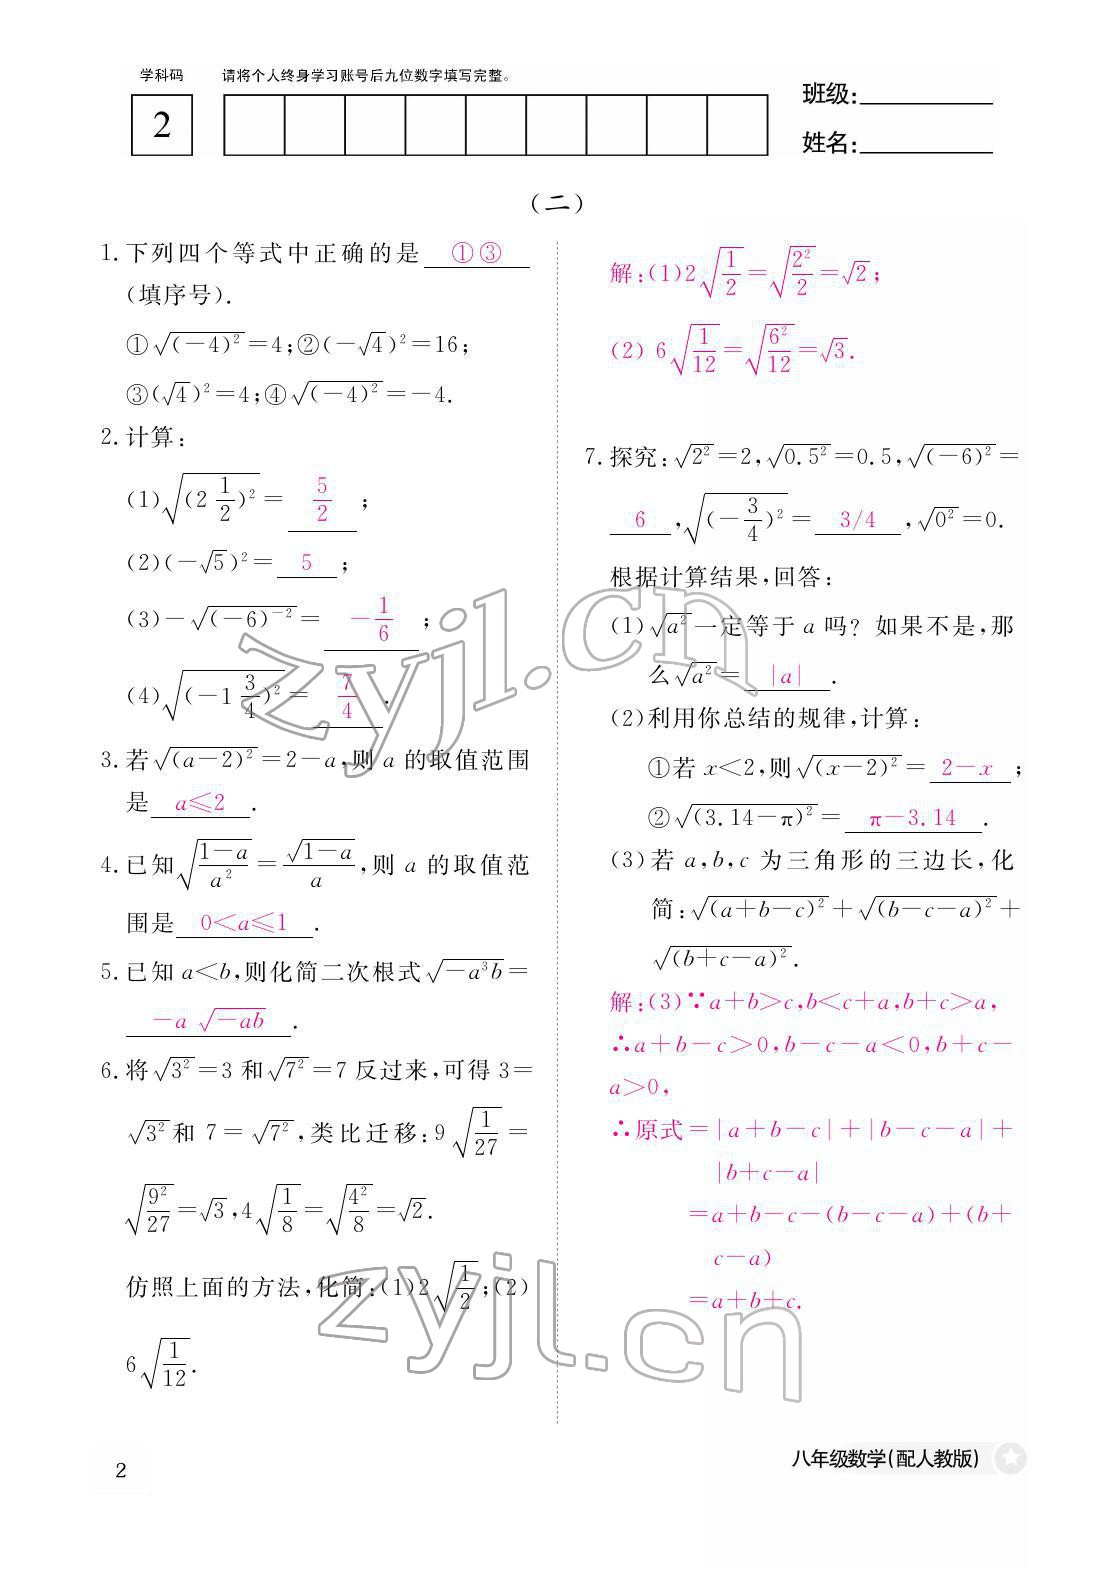 学科码 请将个人终身学习账号后九位数字填写完整。
2
班级:
姓名:
(二)
1. 下列四个等式中正确的是 ①③
(填序号).
①√(-4)²=4;②(-√4)²=16;
③(√4)²=4;④√(-4)²=-4.
2. 计算:
(1)√(2 1/2)²= 5/2 ;
(2)(-√5)²= 5 ;
(3)-√(-6)⁻²= -1/6 ;
(4)√(-1 3/4)²= 7/4 .
3. 若√(a-2)²=2-a,则 a 的取值范围
是 a≤2 .
4. 已知√((1-a)/a²)=√(1-a)/a,则 a 的取值范
围是 0<a≤1 .
5. 已知 a<b,则化简二次根式√(-a³b)=
-a √(-ab) .
6. 将√3²=3 和√7²=7 反过来,可得 3=
√3²和 7=√7²,类比迁移:9√(1/27)=
√(9²/27)=√3,4√(1/8)=√(4²/8)=√2.
仿照上面的方法,化简:(1)2√(1/2);(2)
6√(1/12).
解:(1)2√(1/2)=√(2²/2)=√2;
(2) 6√(1/12)=√(6²/12)=√3.
7. 探究:√2²=2,√0.5²=0.5,√(-6)²=
6 ,√(-3/4)²= 3/4 ,√0²=0.
根据计算结果,回答:
(1)√a²一定等于 a 吗? 如果不是,那
么√a²= |a| .
(2)利用你总结的规律,计算:
①若 x<2,则√(x-2)²= 2-x ;
②√(3.14-π)²= π-3.14 .
(3)若 a,b,c 为三角形的三边长,化
简:√(a+b-c)²+√(b-c-a)²+
√(b+c-a)².
解:(3)∵a+b>c,b<c+a,b+c>a,
∴a+b-c>0,b-c-a<0,b+c-
a>0,
∴原式=|a+b-c|+|b-c-a|+
|b+c-a|
=a+b-c-(b-c-a)+(b+
c-a)
=a+b+c.
zyjl.cn
zyjl.cn
2
八年级数学(配人教版)